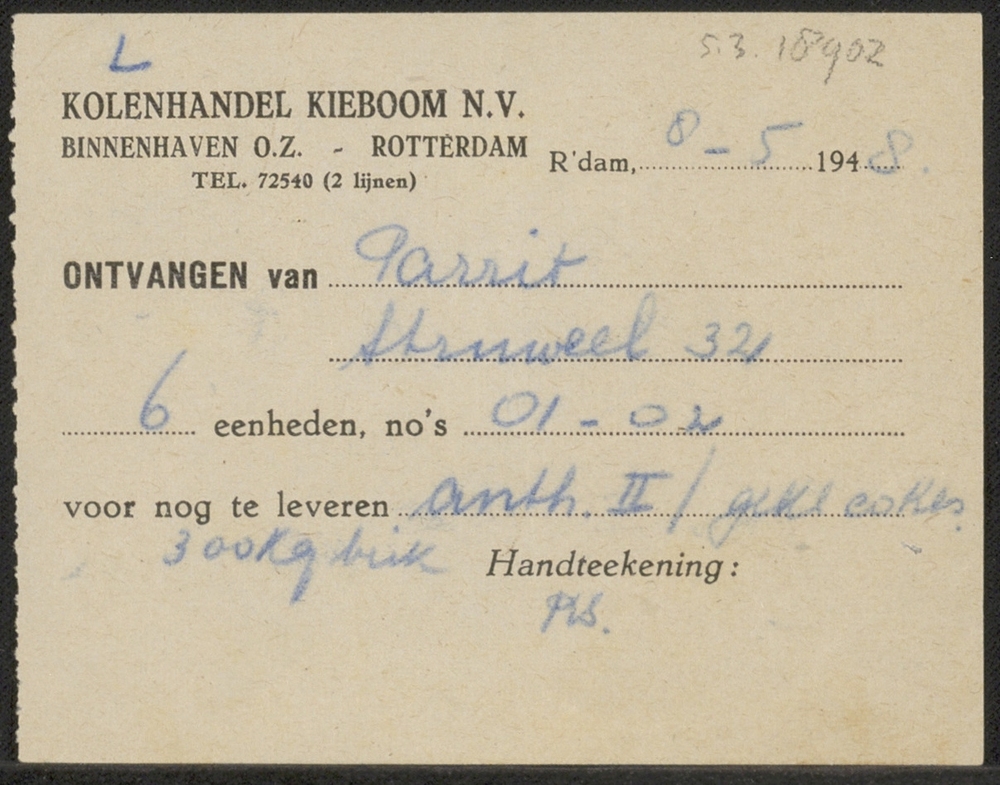 L
53.18902
KOLENHANDEL KIEBOOM N.V.
BINNENHAVEN O.Z. - ROTTERDAM
TEL. 72540 (2 lijnen)
R'dam, 8-5 1948.
ONTVANGEN van Parrit
Struweel 32
6 eenheden, no's 01-02
voor nog te leveren anth. II / cokes
300kg brik
Handteekening: